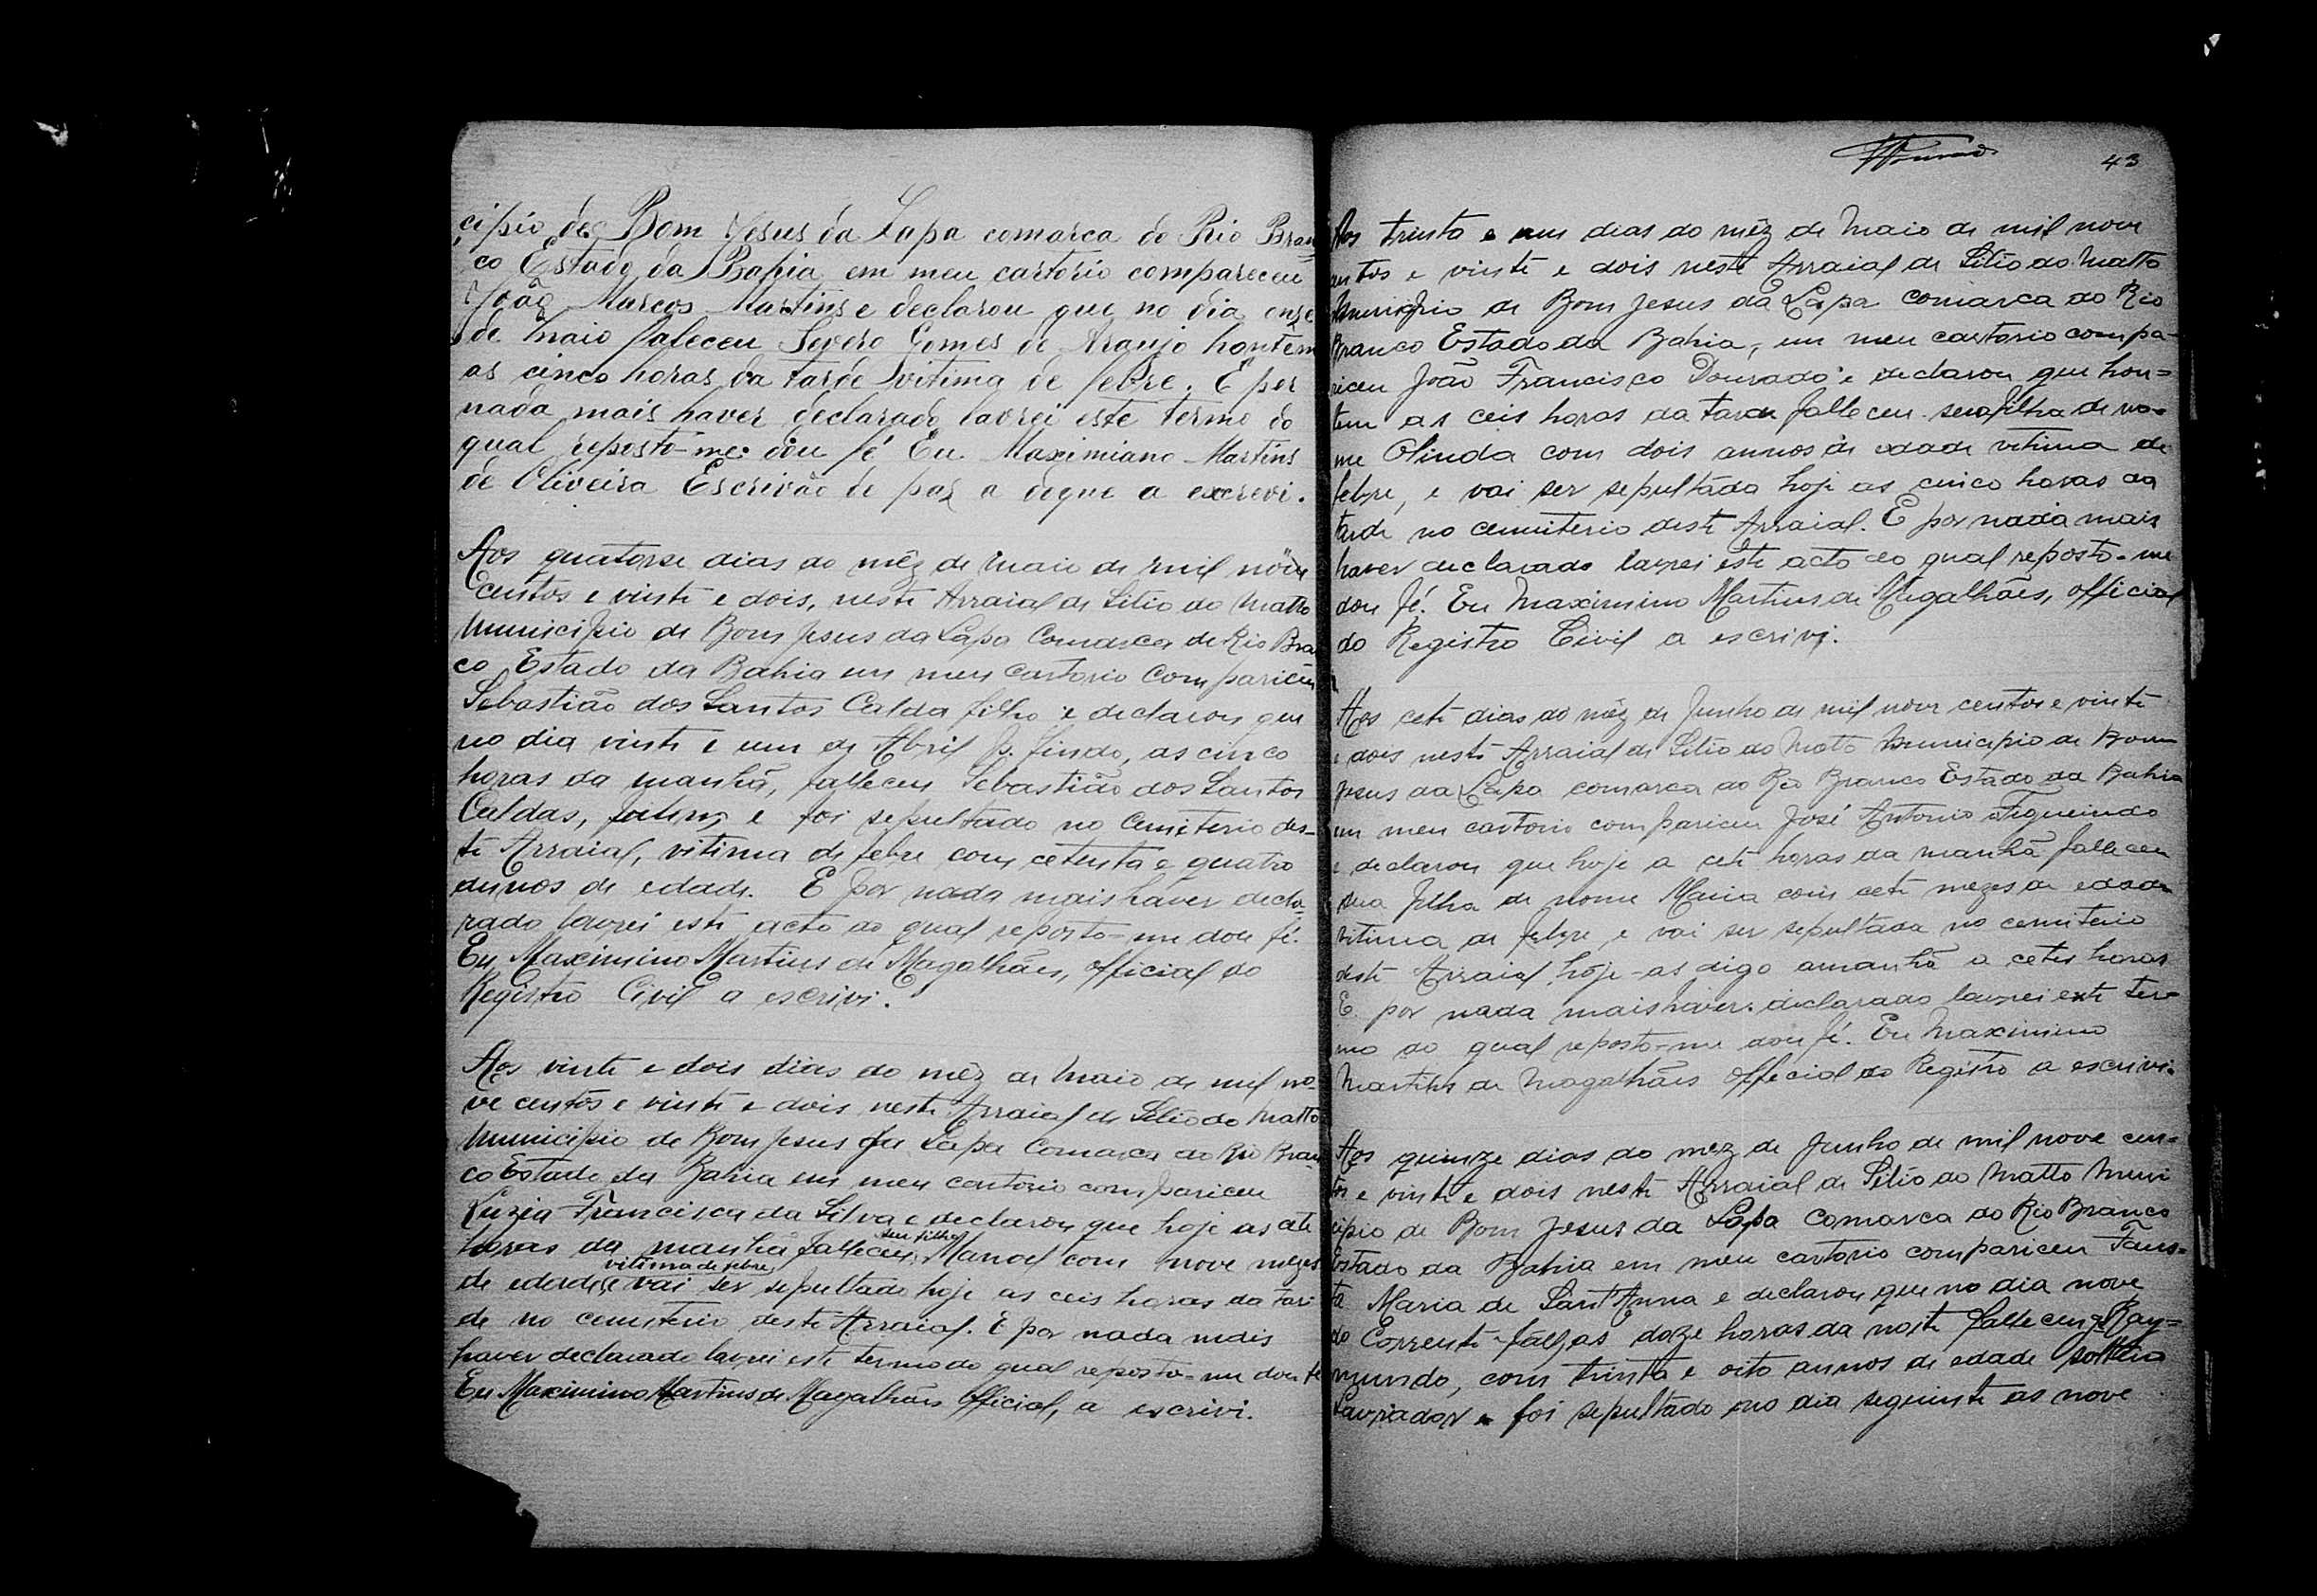 cipio de Bom Jesus da Lapa comarca do Rio Bran
co Estado da Bahia em meu cartorio compareceu
João Marcos Martins e declarou que no dia onze
de Maio faleceu Severo Gomes de Araujo hontem
as cinco horas da tarde vitima de febre. E por
nada mais haver declarado lavrei este termo do
qual reposto-me dou fé Eu Maximiano Martins
de Oliveira Escrivão de paz a que a escrevi.
Aos quatorse dias do mêz de Maio de mil nove
centos e vinte e dois, neste Arraial de Sitio do Matto
Municipio de Bom Jesus da Lapa Comarca de Rio Bra
co Estado da Bahia em meu Cartorio Compariceu
Sebastião dos Santos Calda filho e declarou que
no dia vinte e um de Abril p. findo, as cinco
horas da manhã, falleceu Sebastião dos Santos
Caldas, e foi sepultado no Cemiterio des-
te Arraial, vitima de febre com cetenta e quatro
annos de edade. E por nada mais haver decla-
rado lavrei este acto do qual reposto-me dou fé.
Eu Maximino Martins de Magalhães, official do
Registro Civil a escrivi.
Aos vinte e dois dias do mêz de Maio de mil no-
ve centos e vinte e dois neste Arraial de Sitio do Matto
Municipio de Bom Jesus da Lapa Comarca do Rio Bran
co Estado da Bahia em meu cartorio compariceu
Luzia Francisca da Silva e declarou que hoje as cete
horas da manhã falleceu seu filho Manoel com nove mezes
de edade, vitima de febre, e vai ser sepultado hoje as ceis horas da tar
de no cemiterio deste Arraial. E por nada mais
haver declarado lavrei este termo do qual reposto-me dou fé
Eu Maximino Martins de Magalhães Official, a escrivi.
43
Aos trinta e um dias do mêz de Maio de mil nove
centos e vinte e dois neste Arraial de Sitio do Matto
Municipio de Bom Jesus da Lapa comarca do Rio
Branco Estado da Bahia, em meu cartorio compa-
riceu João Francisco Dourado e declarou que hon=
tem as ceis horas da tarde falleceu sua filha de no-
me Olinda com dois annos de edade vitima de
febre, e vai ser sepultada hoje as cinco horas da
tarde no cemiterio deste Arraial. E por nada mais
haver declarado lavrei este acto do qual reposto-me
dou fé. Eu Maximino Martins de Magalhães, official
do Registro Civil a escrivi.
Aos cete dias do mêz de Junho de mil nove centos e vinte
e dois neste Arraial de Sitio do Matto Municipio de Bom
Jesus da Lapa comarca do Rio Branco Estado da Bahia
em meu cartorio compariceu José Antonio Figueiredo
e declarou que hoje a cete horas da manhã falleceu
sua filha de nome Maria com cete mezes de edade
vitima de febre, e vai ser sepultada no cemiterio
deste Arraial, hoje-as digo amanhã a cetes horas
E por nada mais haver declarado lavrei este ter-
mo do qual reposto-me dou fé. Eu Maximino
Martins de Magalhães Official do Registro a escrivi.
Aos quinze dias do mez de Junho de mil nove cen-
tos e vinte e dois neste Arraial de Sitio do Matto Muni
cipio de Bom Jesus da Lapa Comarca do Rio Branco
Estado da Bahia em meu cartorio compariceu Faus=
ta Maria de Sant'Anna e declarou que no dia nove
do Corrente as doze horas da noite falleceu Ray=
mundo, com trinta e oito annos de edade solteiro
Lavrador e foi sepultado no dia seguinte as nove